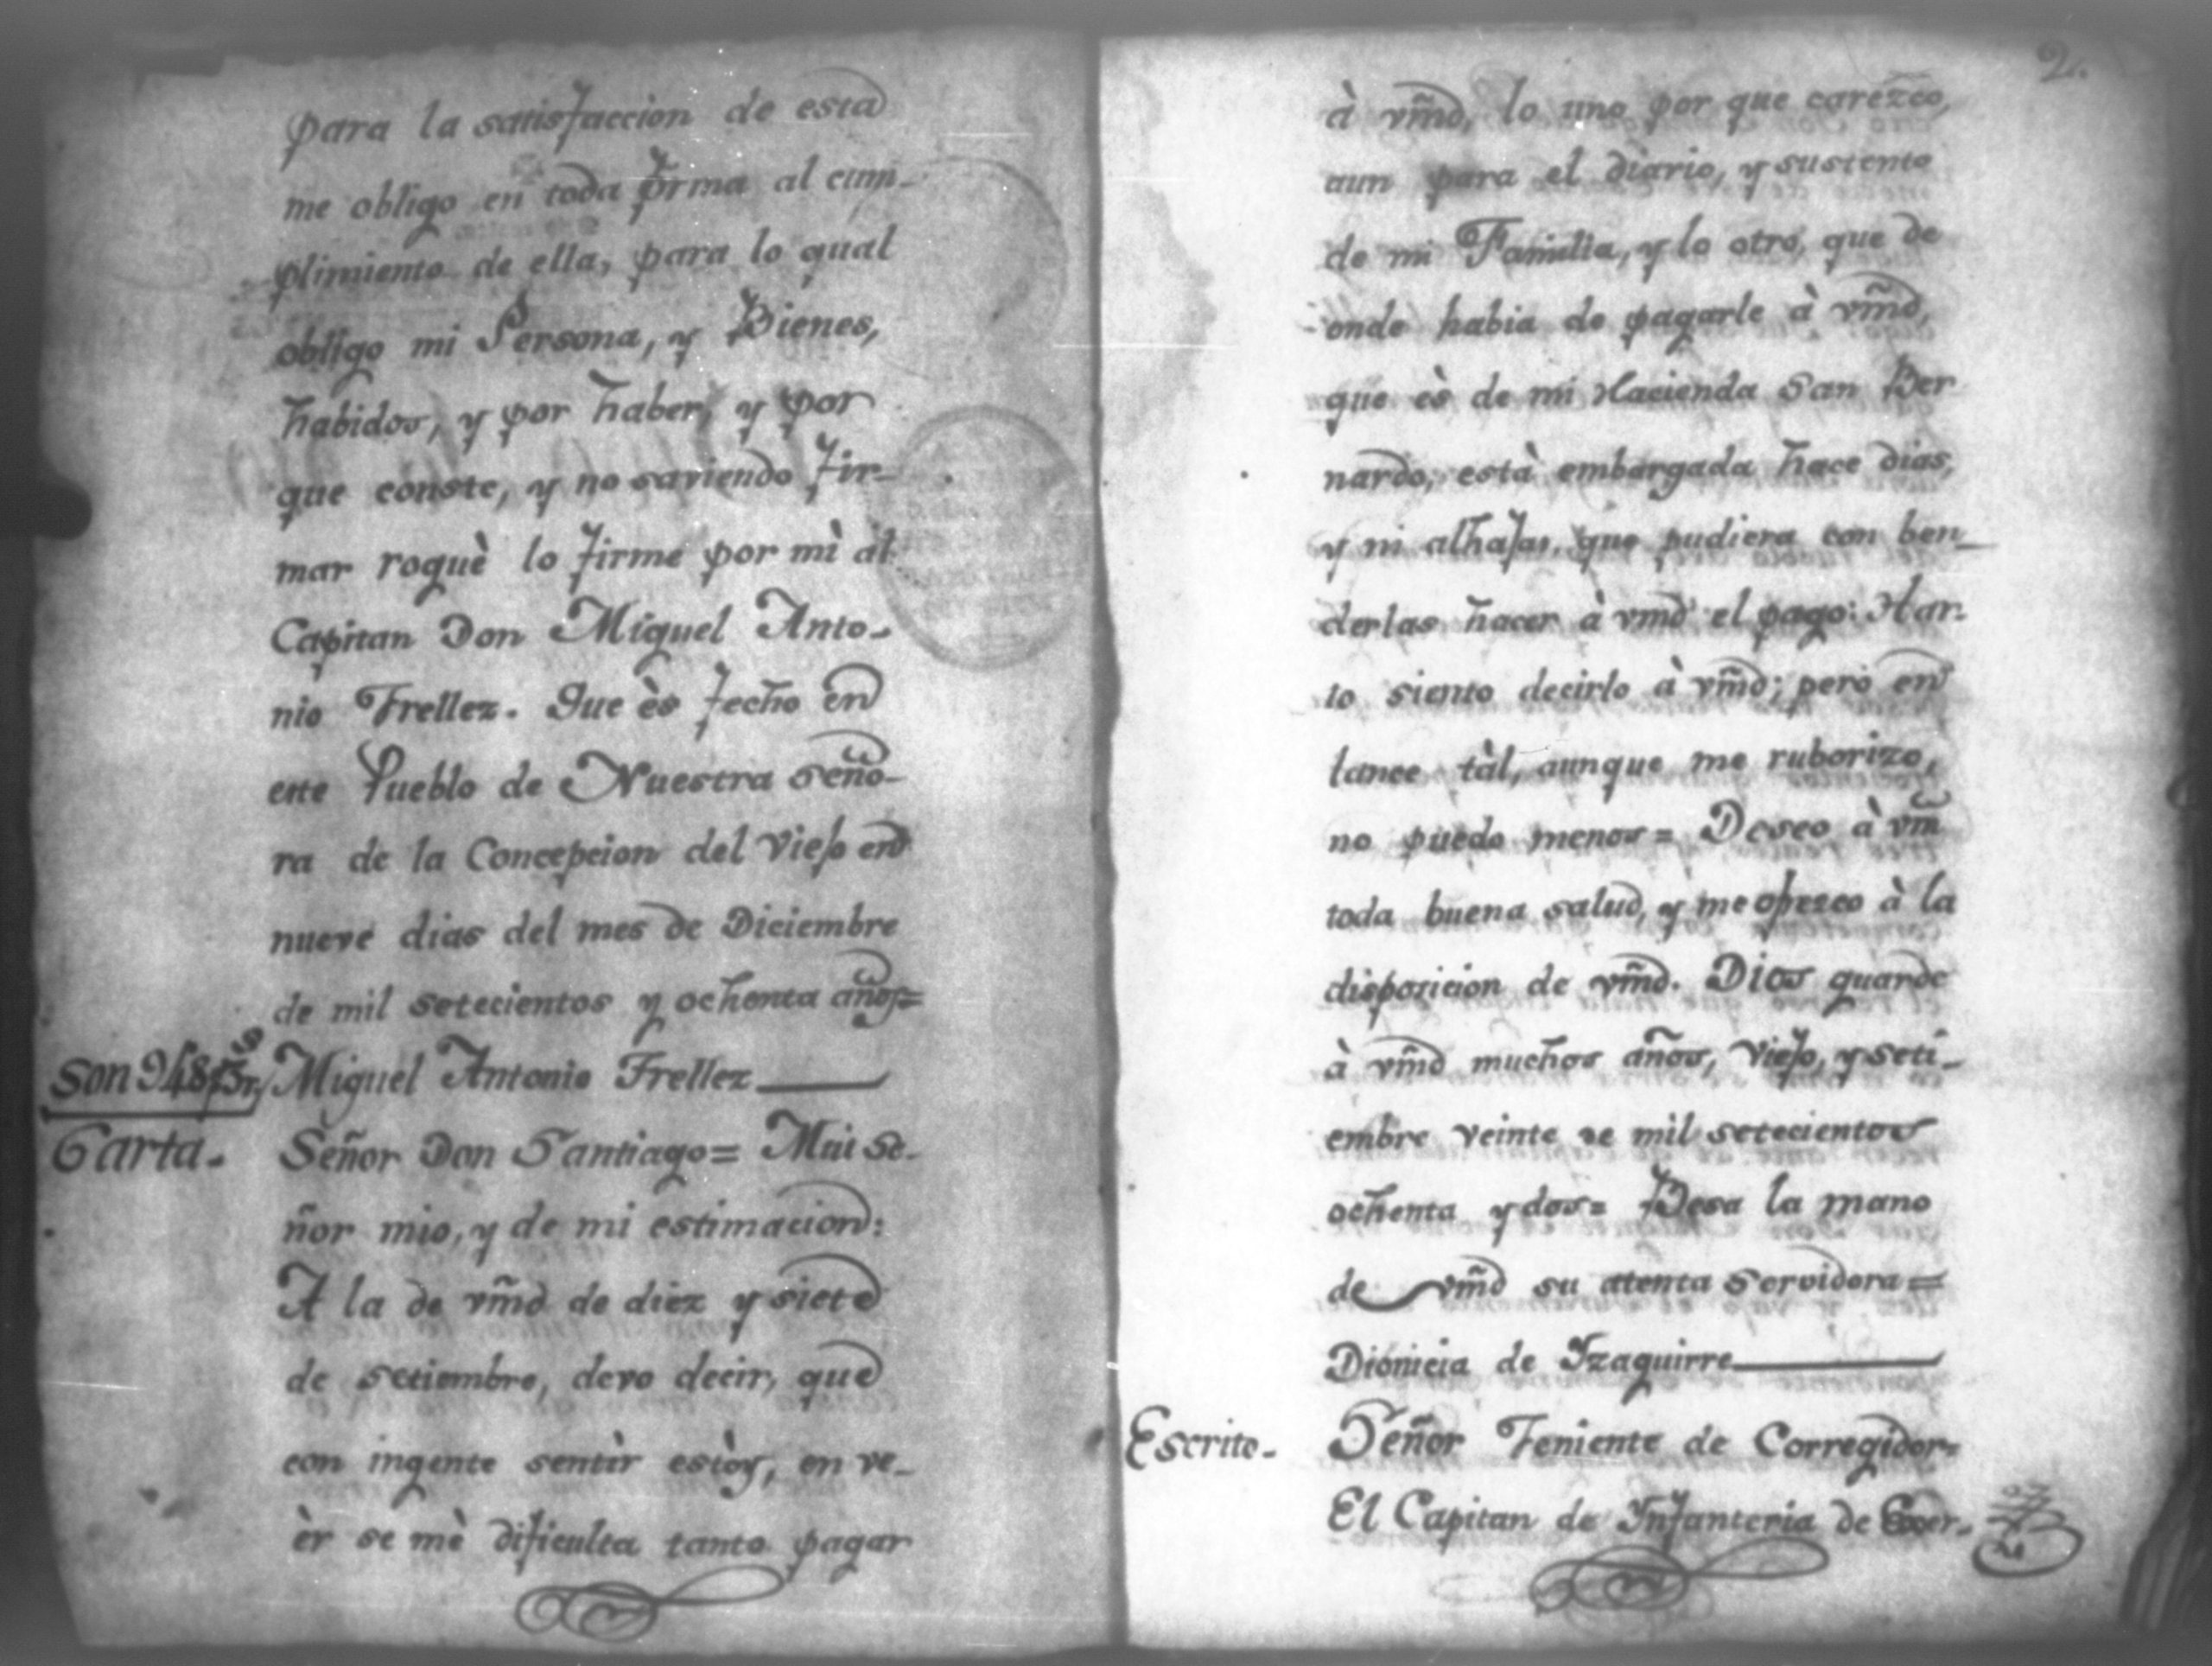 para la satisfaccion de esta
me obligo en toda forma al cum-
plimiento de ella, para lo qual
obligo mi Persona, y Bienes,
habidos, y por haber, y por
que conste, y no saviendo fir-
mar roguè lo firme por mì al
Capitan Don Miguel Anto-
nio Frellez. Que ès fecho en
este Pueblo de Nuestra Seño-
ra de la Concepcion del Viejo en
nueve dias del mes de Diciembre
de mil setecientos y ochenta años=
Miguel Antonio Frellez
Carta. Señor Don Santiago= Mui Se-
ñor mio, y de mi estimacion:
A la de vm̃d de diez y siete
de setiembre, devo decir, que
con ingente sentìr estòy, en ve-
èr se mè dificulta tanto pagar
2.
à vm̃d, lo uno por que carezco,
aun para el diario, y sustento
de mi Familia, y lo otro, que de
onde habia de pagarle à vm̃d,
que ès de mi Hacienda San Ber
nardo, està embargada hace dias,
y ni alhajas, que pudiera con ben-
derlas hacer à vmd el pago: Har-
to siento decirlo à vm̃d; pero en
lance tàl, aunque me ruborizo,
no puedo menos= Deseo à vm̃
toda buena salud, y me ofrezco à la
disposicion de vm̃d. Dios guarde
à vm̃d muchos años, Viejo, y seti-
embre veinte de mil setecientos
ochenta y dos= Besa la mano
de vm̃d su atenta Servidora=
Dionicia de Yzaguirre
Escrito. Señor Teniente de Corregidor=
El Capitan de Ynfanteria de Exer-